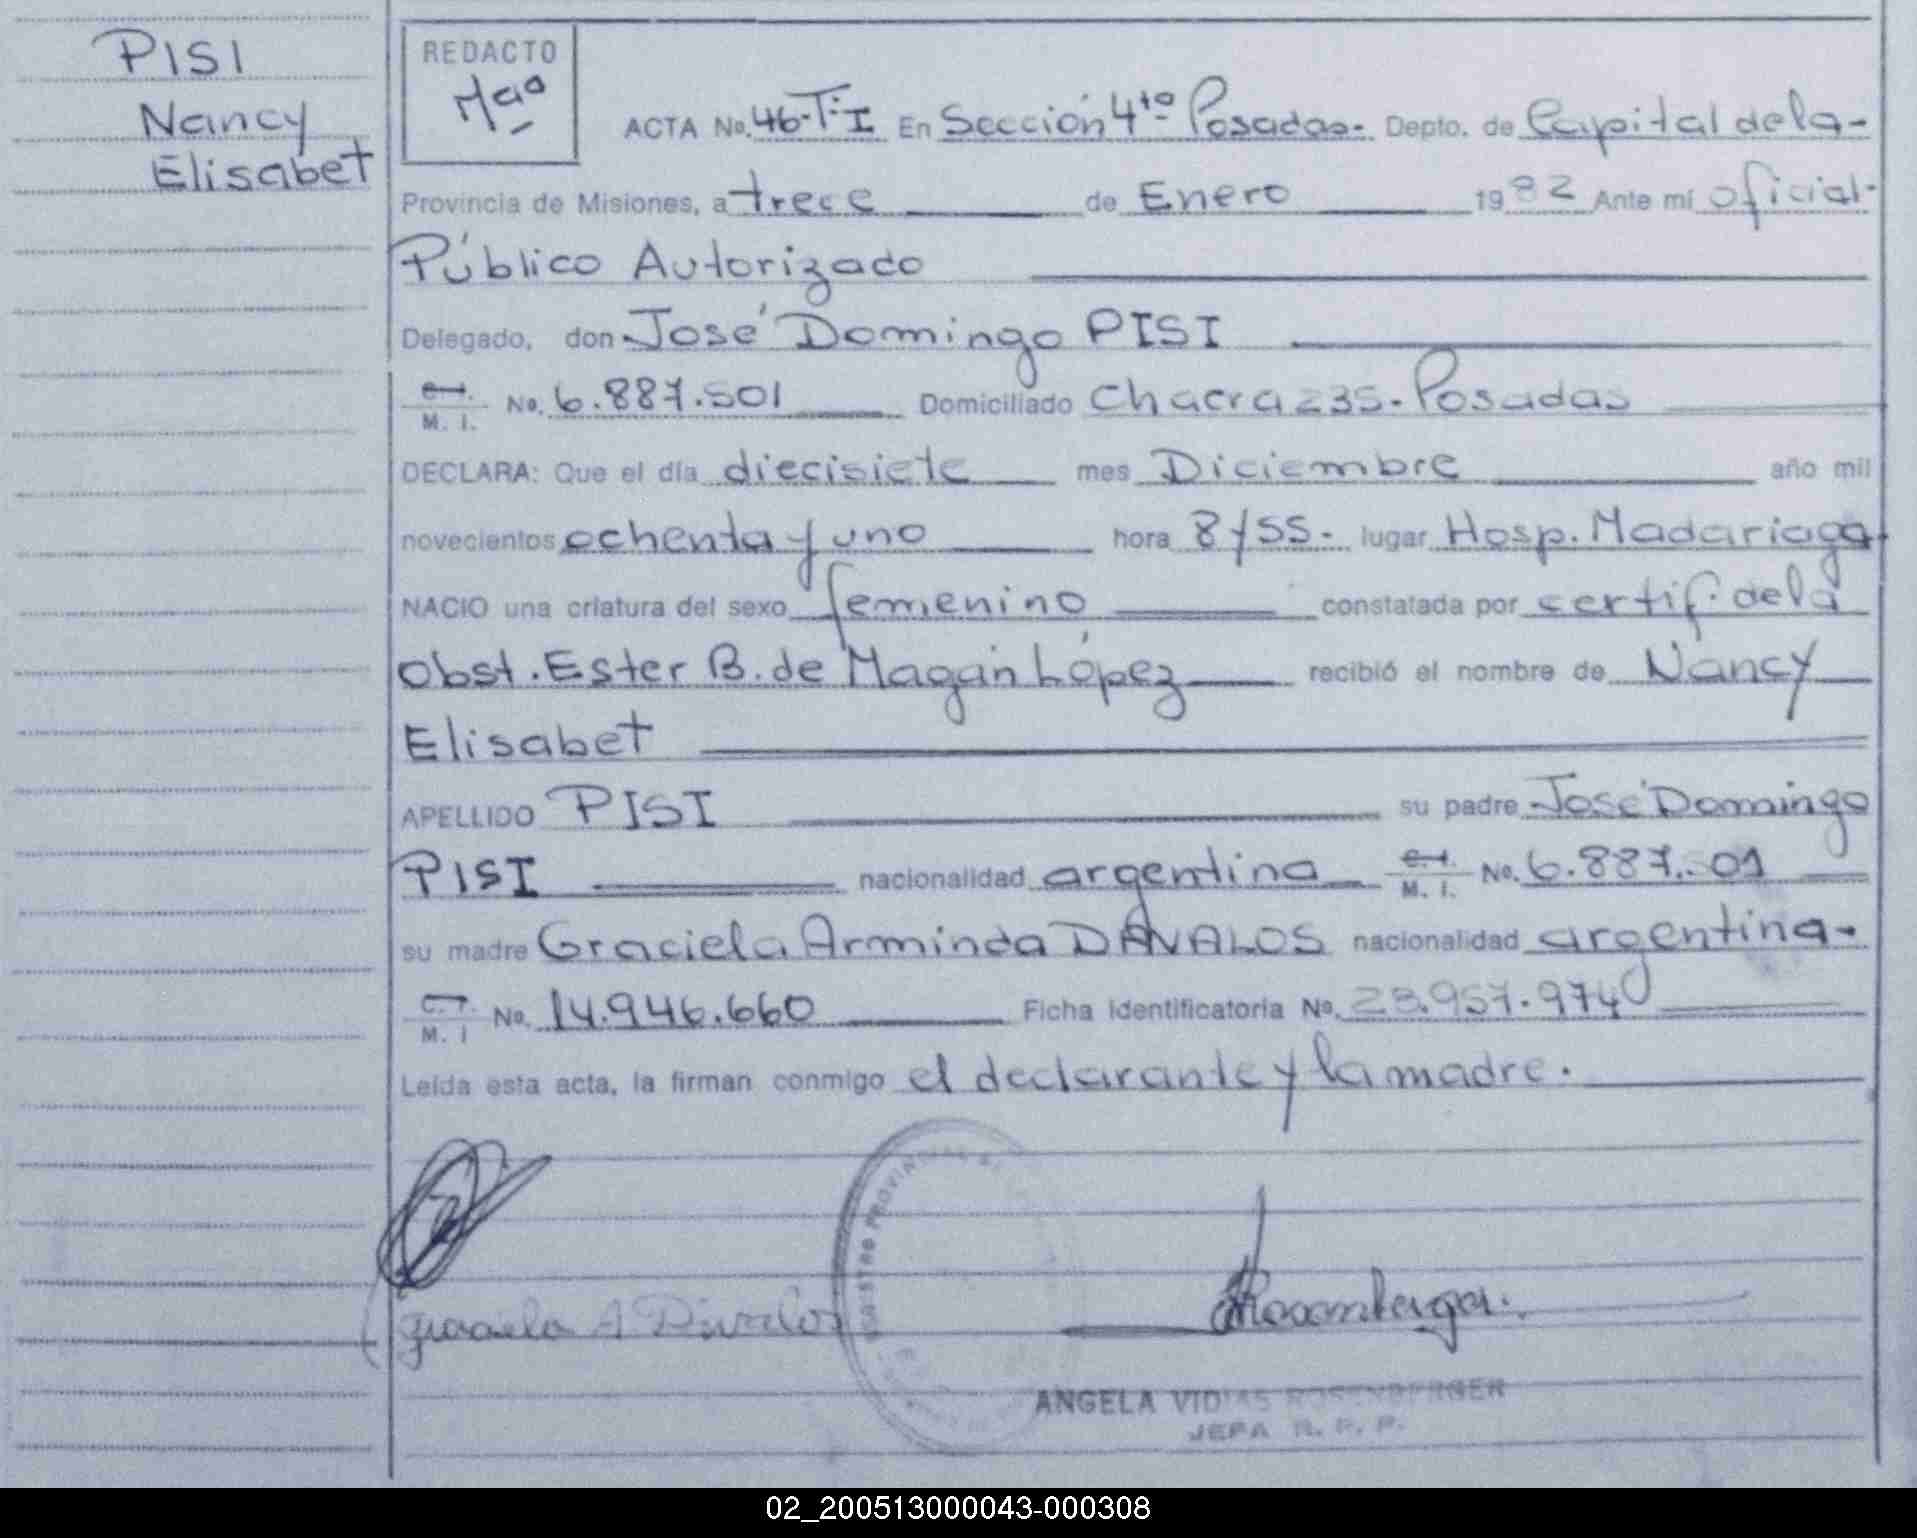 PISI
Nancy
Elisabet
REDACTO
ACTA No. 46-T:I En Sección 4to Posadas- Depto. de Capital de la-
Provincia de Misiones, a trece de Enero 1982 Ante mí oficial-
Público Autorizado
Delegado, don José Domingo PISI
M. I. No. 6.887.501 Domiciliado Chacra 235-Posadas
DECLARA: Que el día diecisiete mes Diciembre año mil
novecientos ochenta y uno hora 8 y 55- lugar Hosp. Madariaga
NACIO una criatura del sexo femenino constatada por certif. de la
Obst. Ester B. de Magán López recibió el nombre de Nancy
Elisabet
APELLIDO PISI su padre José Domingo
PISI nacionalidad argentina M. I. No. 6.887.501
su madre Graciela Arminda DAVALOS nacionalidad argentina-
M. I No. 14.946.660 Ficha identificatoria No. 28.957.974
Leída esta acta, la firman conmigo el declarante y la madre.
PROVINCIAL
ANGELA VIDIAS ROSENBERGER
JEFA R. P. P.
02_200513000043-000308